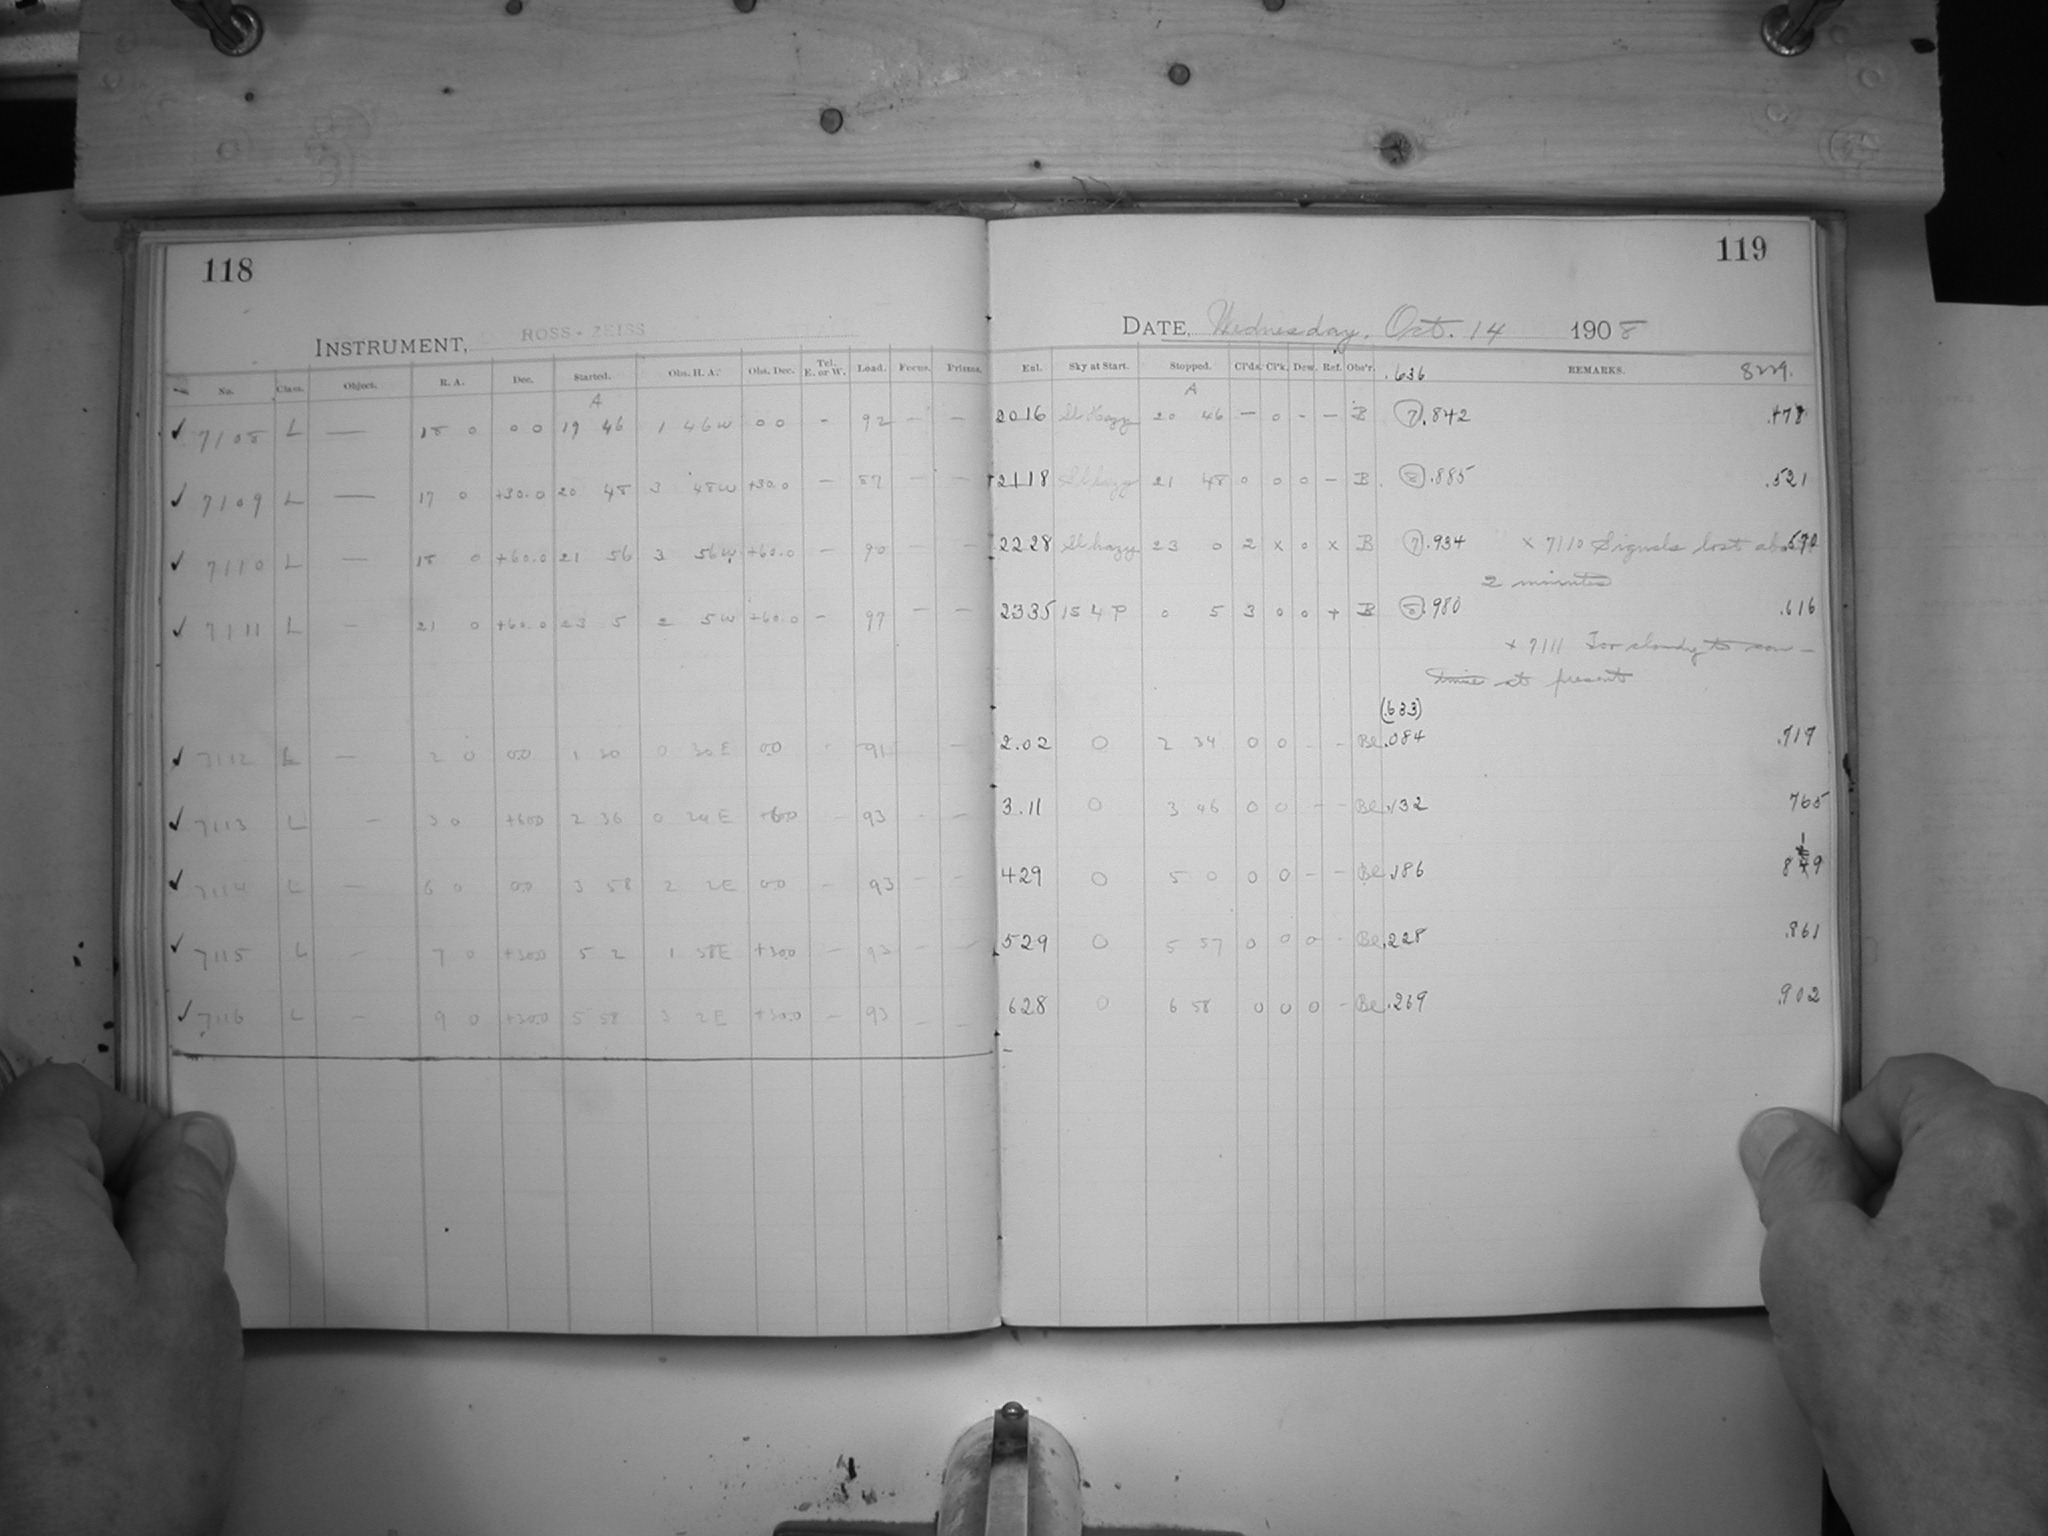 118
INSTRUMENT, ROSS-ZEISS
No. Class. Object. R. A. Dec. Started. Obs. H. A. Obs. Dec. Tel. E. or W. Load. Focus. Prisms.
A
✓ 7108 L — 18 0 0 0 19 46 1 46W 0 0 - 92 — —
✓ 7109 L — 17 0 +30.0 20 48 3 48W +30.0 — 87 — —
✓ 7110 L — 18 0 +60.0 21 56 3 56W +60.0 — 90 — —
✓ 7111 L — 21 0 +60.0 23 5 2 5W +60.0 — 97 — —
✓ 7112 L — 2 0 00 1 30 0 30E 00 - 91 —
✓ 7113 L — 3 0 +600 2 36 0 24E +600 - 93 - -
✓ 7114 L — 6 0 00 3 58 2 2E 00 - 93 - -
✓ 7115 L — 7 0 +300 5 2 1 58E +300 — 93 - -
✓ 7116 L — 9 0 +300 5 58 3 2E +300 — 93 — —
119
DATE, Wednesday, Oct. 14 1908
Exl. Sky at Start. Stopped. Cl'ds. Cl'k. Dew. Ref. Obs'r. .636 REMARKS. 8m.
A
2016 Sl Hazy 20 46 — 0 - — B (7).842 .478
2118 Sl hazy 21 48 0 0 0 — B (8).885 .521
2228 Sl hazy 23 0 2 x 0 x B (7).934 x 7110 Signals lost about .570
2 minutes
2335 15 4 P 0 5 3 0 0 + B (8).980 .616
+ 7111 Too cloudy to con-
tinue at present
(.633)
2.02 0 2 34 0 0 - - Be .084 .717
3.11 0 3 46 0 0 - - Be .132 765
429 0 5 0 0 0 - - Be .186 819
529 0 5 57 0 0 0 - Be .228 .861
628 0 6 58 0 0 0 - Be .269 .902